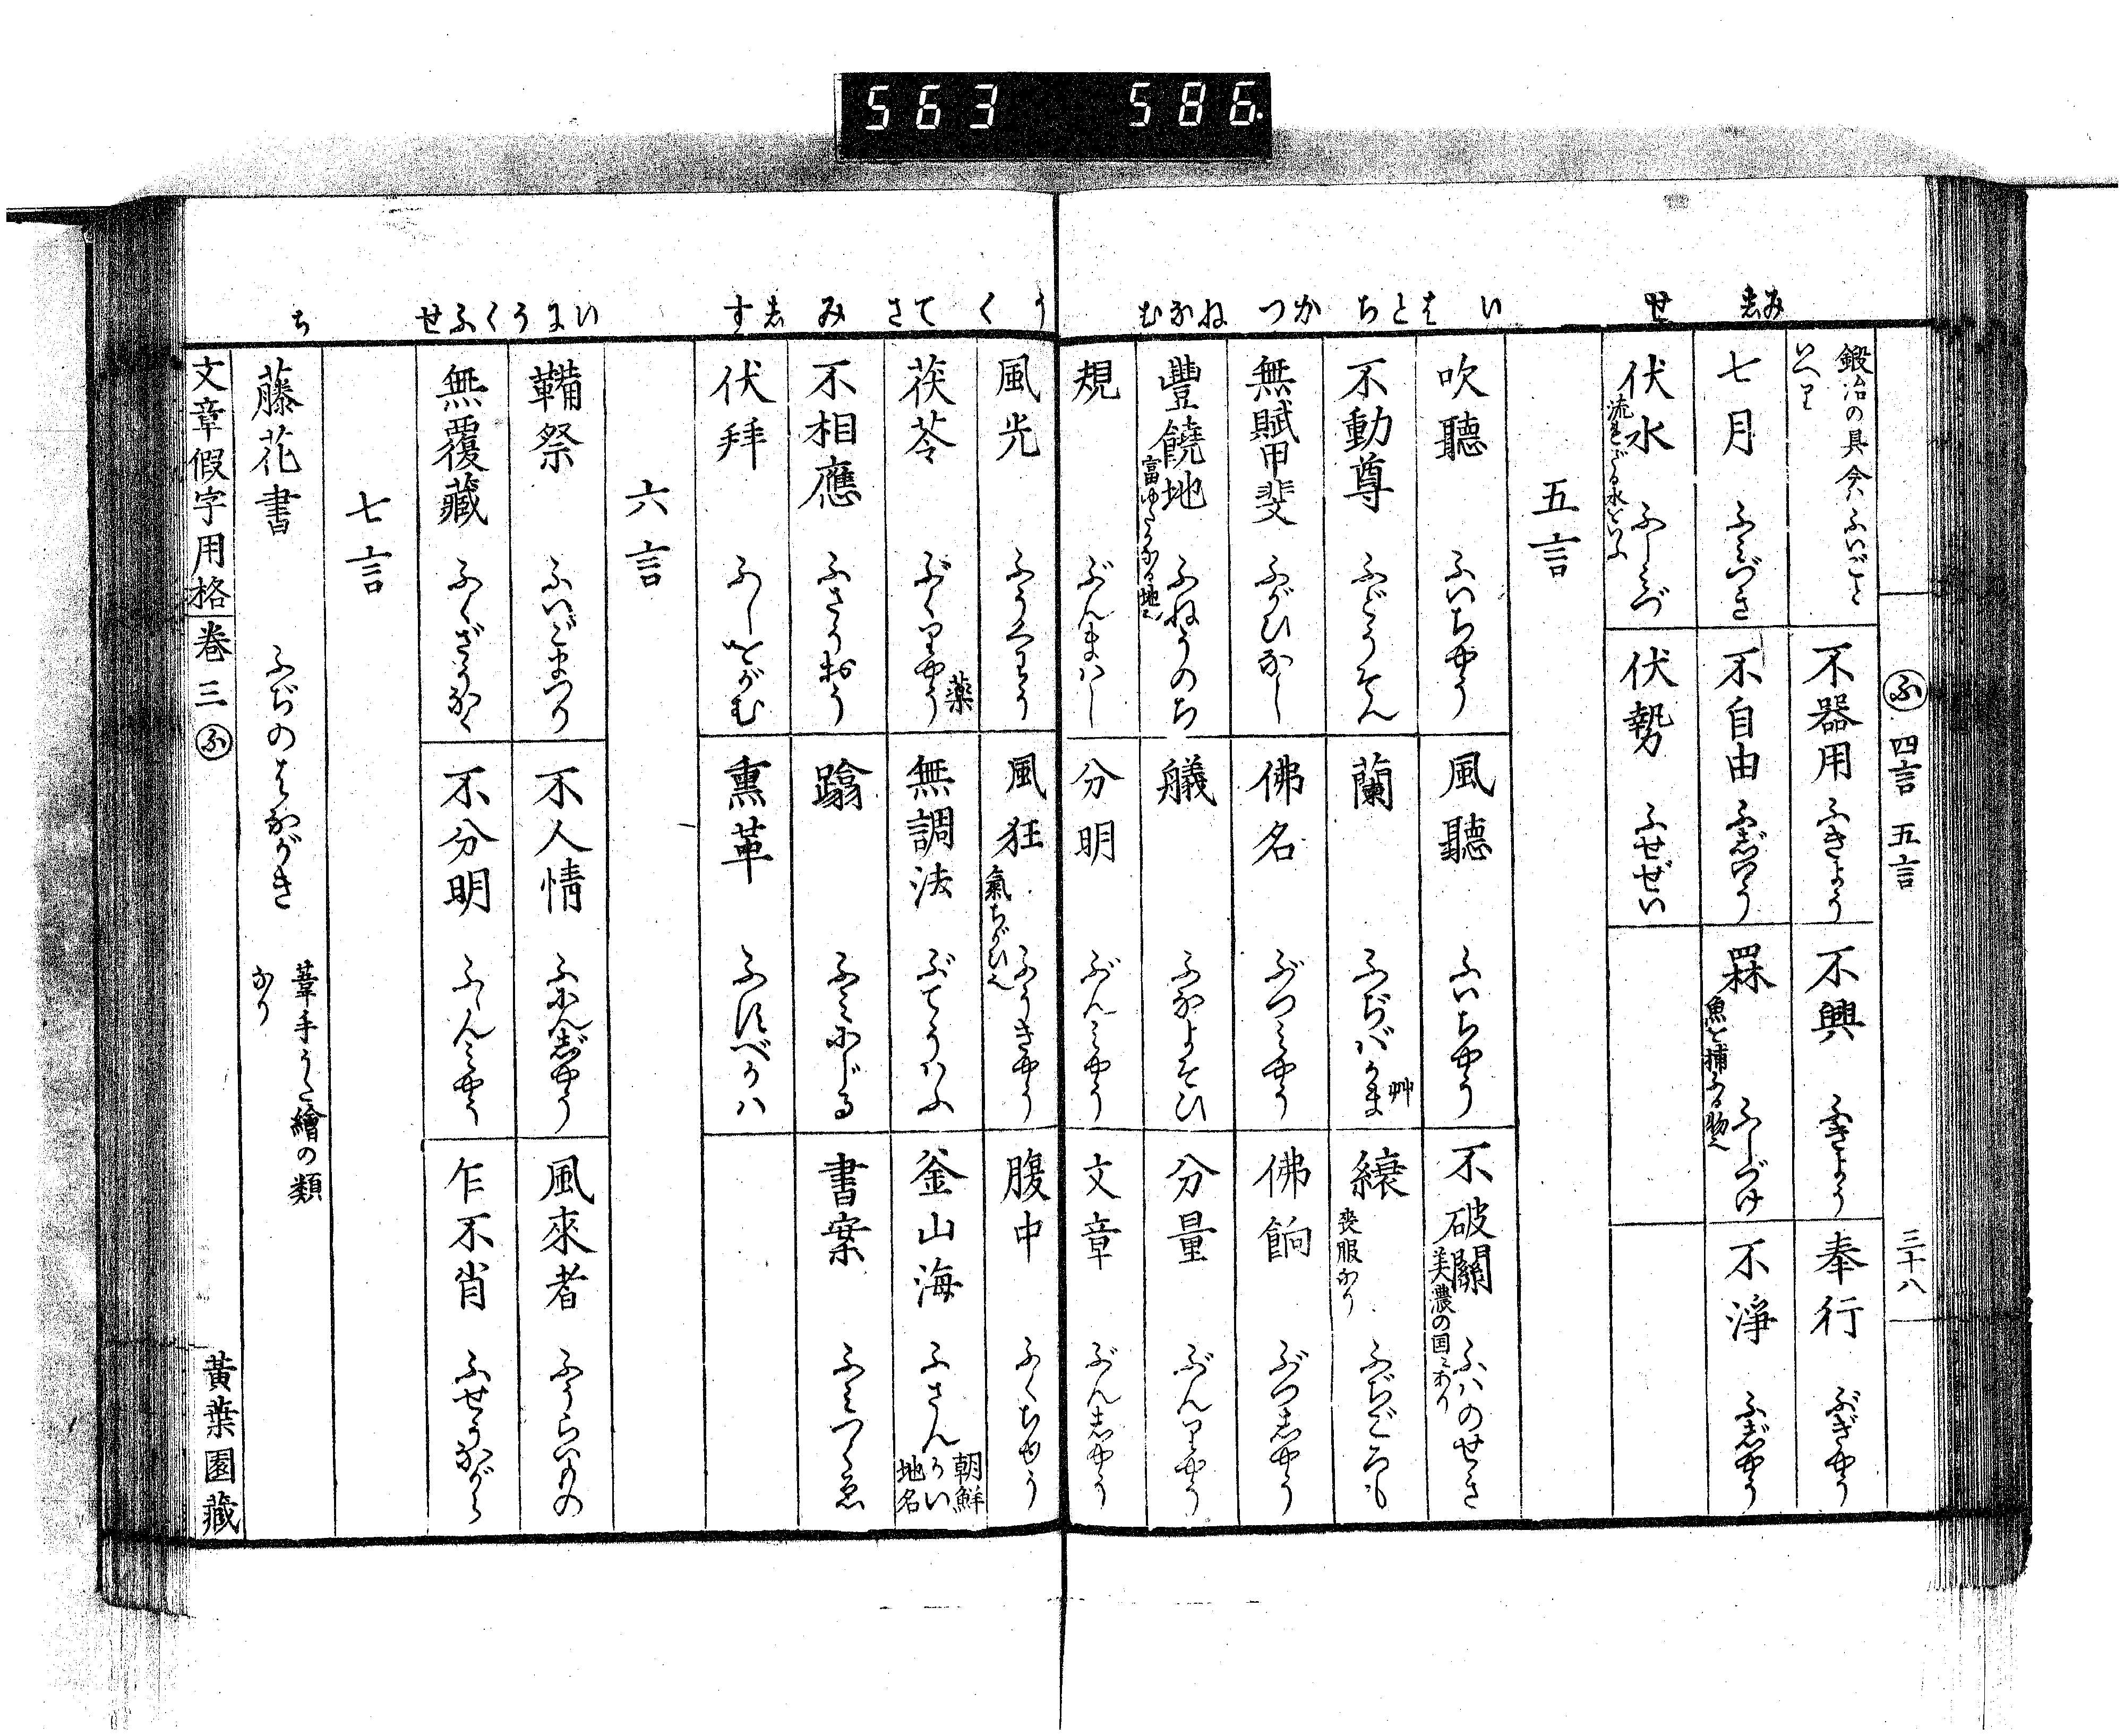 563 586
ふ 四言 五言 三十八
みし せ い はとち かつ ねなむ
鍛冶の具今ハふいごと
いへり
不器用 ふきよう
不興 ふきよう
奉行 ぶぎやう
七月 ふみづき
不自由 ふじいう
罧 ふしづけ 魚を捕ふる物也
不淨 ふじやう
伏水 ふしみづ
伏勢 ふせぜい
五言
吹聽 ふいちやう
風聽 ふいちやう
不破關 ふハのせき 美濃の国にあり
不動尊 ふどうそん
蘭 ふぢバかま 艸
縗 ふぢごろも 喪服なり
無賦甲斐 ふがひなし
佛名 ぶつみやう
佛餉 ぶつしやう
豐饒地 ふねうのち 富ゆたかなる地也
艤 ふなよそひ
分量 ぶんりやう
規 ぶんまハし
分明 ぶんみやう
文章 ぶんしやう
う く てさ み しす いにうくふせ ち
風光 ふうくわう
風狂 ふうきやう 氣ちがひ也
腹中 ふくちやう
茯苓 ぶくりやう 薬
無調法 ぶてうハふ
釜山海 ふさんかい 朝鮮地名
不相應 ふさうおう
蹹 ふみにじる
書案 ふみつくゑ
伏拜 ふしをがむ
熏革 ふすべかハ
六言
鞴祭 ふいごまつり
不人情 ふにんじやう
風來者 ふうらいもの
無覆藏 ふくざうなく
不分明 ふぶんみやう
乍不肖 ふせうながら
七言
藤花書 ふぢのはながき 葦手うた繪の類
なり
文章假字用格 卷三 ふ 黃葉園藏